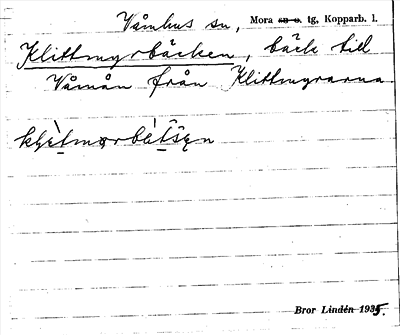 Våmhus sn, Mora s̶n̶ o̶. tg, Kopparb. l.
Klittmyrbäcken, bäck till
Våmån från Klittmyrarna.
Bror Lindén 1935.